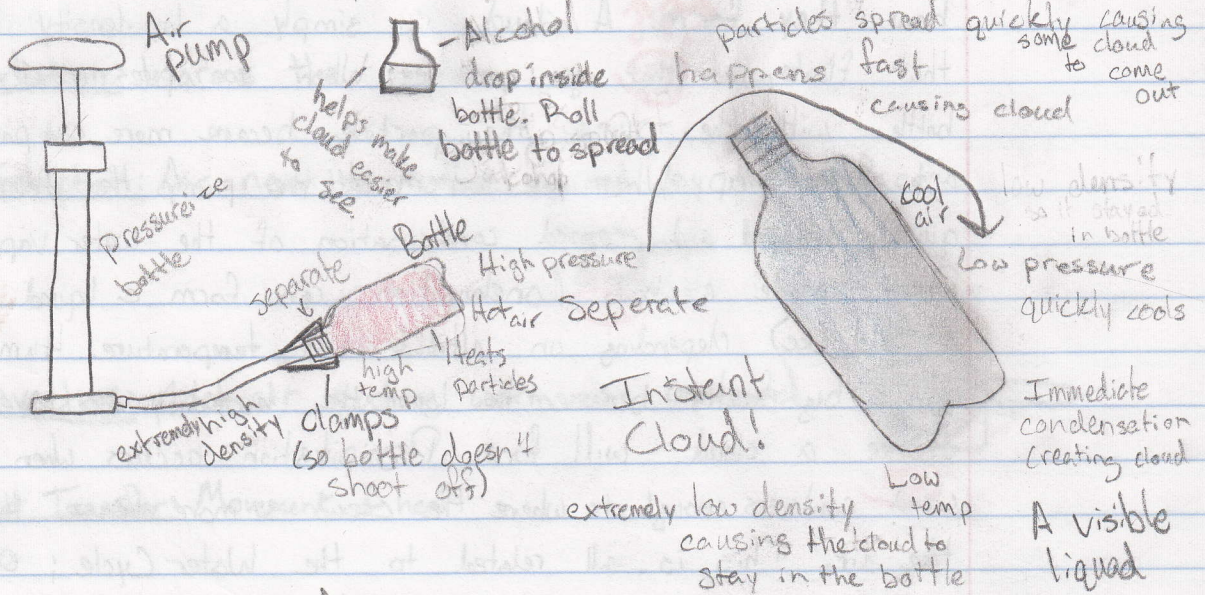 Air
pump
Alcohol
drop inside
bottle. Roll
bottle to spread
helps make
cloud easier
to
see.
pressurize
bottle
separate
Bottle
High pressure
Hot air
Heats
particles
high
temp
extremely high
density
Clamps
(so bottle doesn't
shoot off)
Seperate
particles spread quickly causing
some cloud
to come
out
happens fast
causing cloud
cool
air
low density
so it stayed
in bottle
Low pressure
quickly cools
Instant
Cloud!
Immediate
condensation
creating cloud
Low
temp
extremely low density
causing the cloud to
stay in the bottle
A visible
liquad